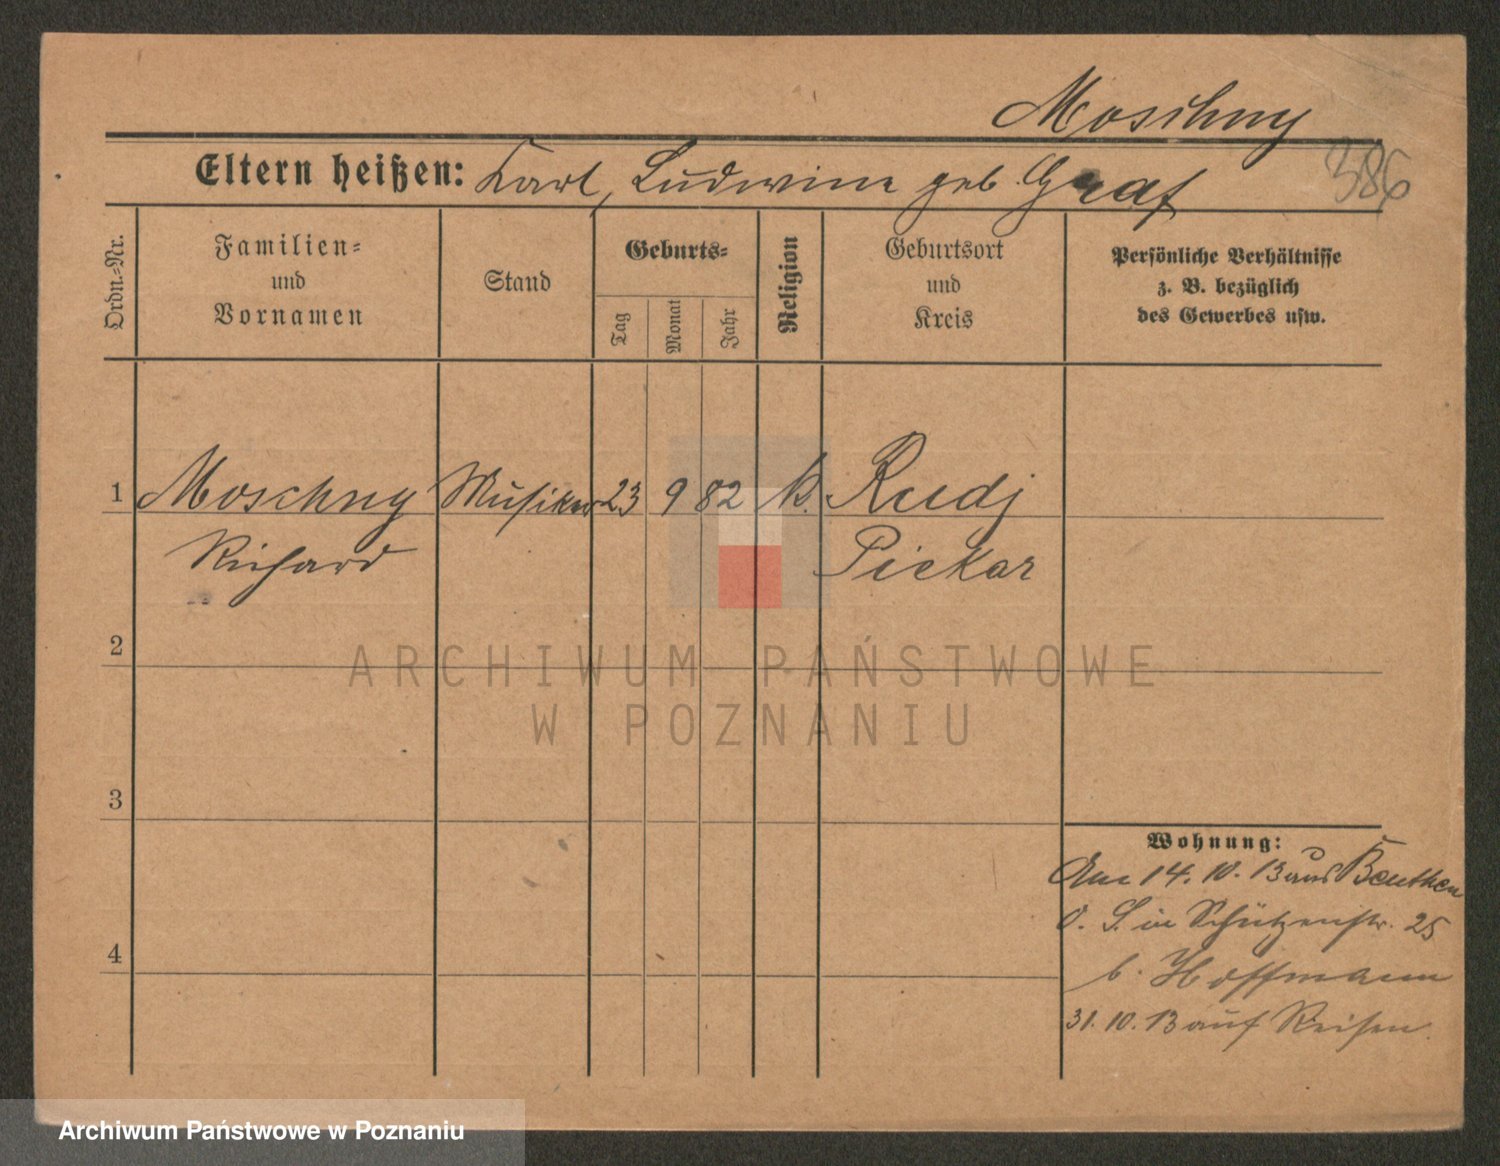 Moschny
386
Eltern heißen: Karl, Ludwine geb. Graf
Ordn.-Nr.
Familien- und Vornamen
Stand
Geburts-
Tag
Monat
Jahr
Religion
Geburtsort und Kreis
Persönliche Verhältnisse
z. B. bezüglich
des Gewerbes usw.
1 Moschny Musiker 23 9 82 k. Rudj
Richard Piekar
2
3
4
Wohnung:
Am 14. 10. 13 aus Beuthen
O. S. in Schützenstr. 25
b. Hoffmann
31. 10. 13 auf Reisen.
ARCHIWUM PAŃSTWOWE
W POZNANIU
Archiwum Państwowe w Poznaniu